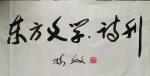 东方文学·诗刊